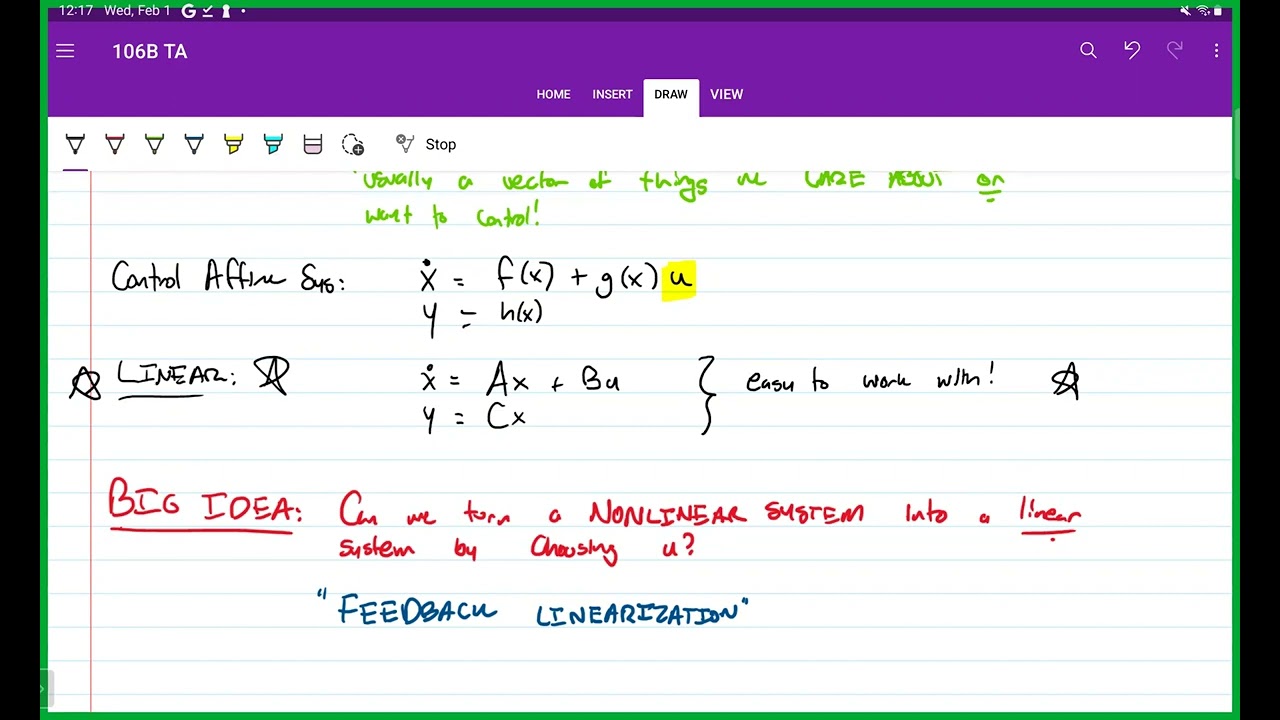 12:17 Wed, Feb 1 G
106B TA
HOME INSERT DRAW VIEW
Stop
usually a vector of things we CARE ABOUT or
want to control!
Control Affine Sys: ẋ = f(x) + g(x) u
y = h(x)
LINEAR: ẋ = Ax + Bu } easy to work with!
y = Cx
BIG IDEA: Can we turn a NONLINEAR SYSTEM into a linear
system by choosing u?
"FEEDBACK LINEARIZATION"